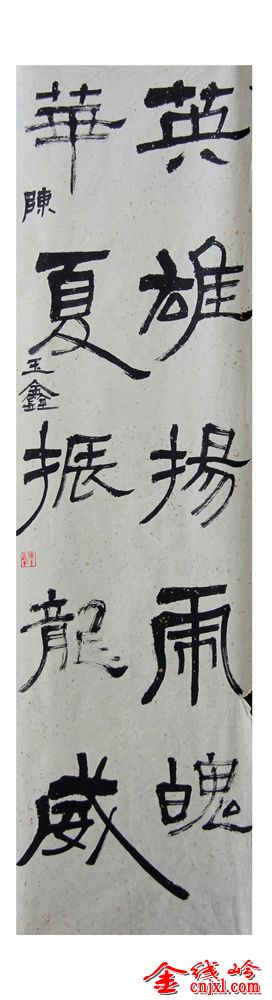 英雄揚虎魄
華夏振龍威
陳玉鑫
金线岭
cnjxl.com